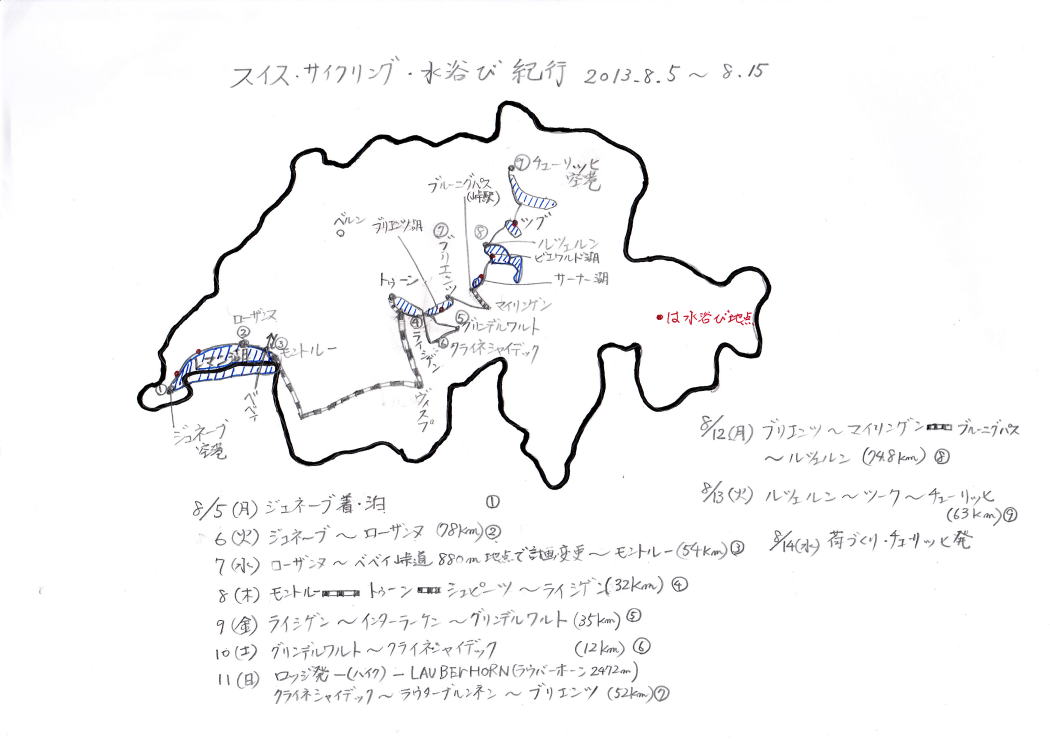 スイス・サイクリング・水浴び紀行 2013.8.5～8.15
⑨チューリッヒ
空港
ブルーニグパス
(峠駅)
ベルン
ブリエンツ湖
⑦
ブリエンツ
⑧
ツグ
ルツェルン
ビエワルド湖
サーナー湖
トゥーン
マイリンゲン
④
ライシゲン
⑤
グリンデルワルト
⑥
クライネシャイデック
●は水浴び地点
ローザンヌ
②
③
モントルー
レマン湖
ベベイ
①
ジュネーブ
空港
ヴィスプ
8/5(月) ジュネーブ着・泊 ①
6(火) ジュネーブ～ローザンヌ (78km)②
7(水) ローザンヌ～ベベイ峠道880m地点で計画変更～モントルー(54km)③
8(木) モントルー トゥーン シュピーツ～ライシゲン(32km) ④
9(金) ライシゲン～インターラーケン～グリンデルワルト(35km)⑤
10(土) グリンデルワルト～クライネシャイデック (12km) ⑥
11(日) ロッジ発ー(ハイク)ーLAUBERHORN(ラウバーホーン2472m)
クライネシャイデック～ラウターブルンネン～ブリエンツ (52km)⑦
8/12(月) ブリエンツ～マイリンゲン ブルーニグパス
～ルツェルン (74.8km) ⑧
8/13(火) ルツェルン～ツーク～チューリッヒ
(63km)⑨
8/14(水) 荷づくり・チューリッヒ発